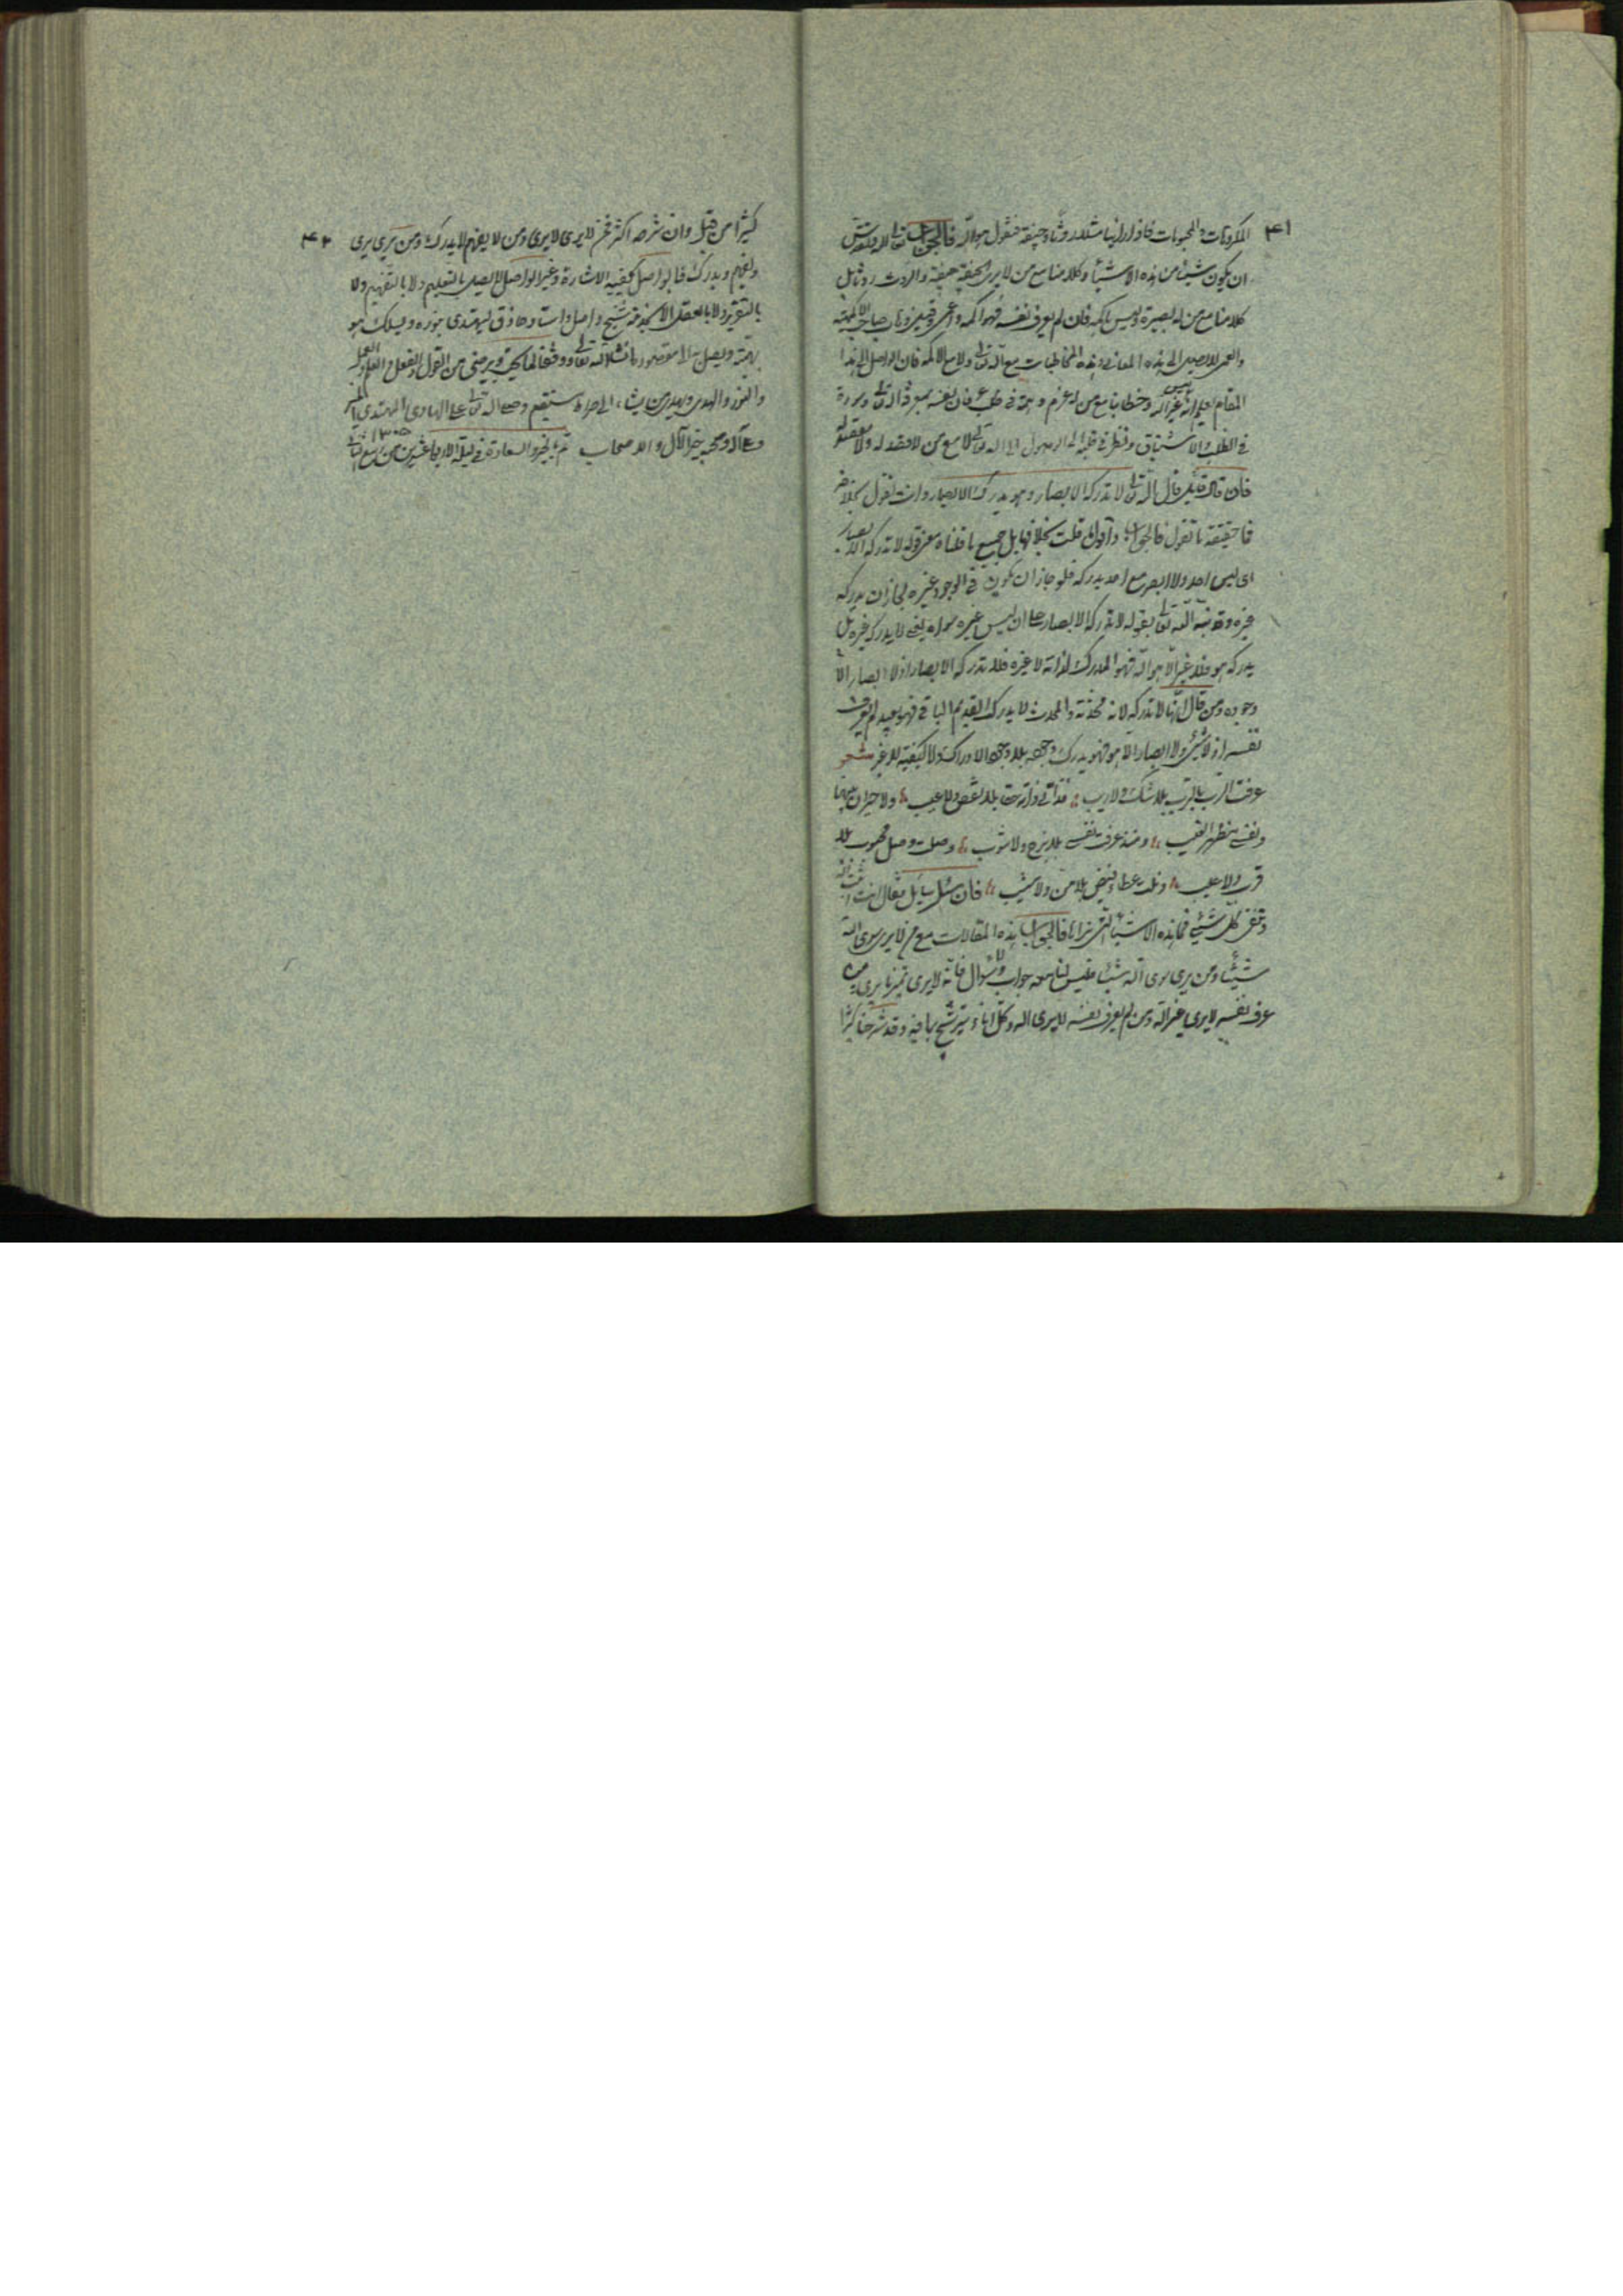 ۴۱
المكروهات والمحبوبات فاذا راينا مثلا روثا وجيفة فنقول هو الله فالجواب تعالى الله وتقدس
ان يكون شيئا من هذه الاشياء وكلامنا مع من لا يرى الجيفة جيفة والروث روثا بل
كلامنا مع من له بصيرة وليس باكمه فان لم يعرف نفسه فهو اكمه واعمى وقبل
والعمى لا يصل الى هذه المعاني وهذه المخاطبات مع الله تعالى ولا مع الاكمه فان الواصل الى هذا
المقام يعلم انه ليس غير الله وخطابنا مع من له عزم وهمة في طلب عرفان نفسه بمعرفة الله تعالى
في الطلب والاشتياق الى الوصول الى الله تعالى لا مع من لا قصد له ولا مقصد له
فان قال قائل قال الله تعالى لا تدركه الابصار وهو يدرك الابصار وانت تقول بخلافه
فما حقيقة ما تقول فالجواب جميع ما قلناه معنى قوله لا تدركه الابصار
اى ليس احد ولا بصر مع احد يدركه فلو جاز ان يكون في الوجود غيره لجاز ان يدركه
غيره وقد نبه الله تعالى بقوله لا تدركه الابصار على ان ليس غيره سواه يعنى لا يدركه غيره بل
يدركه هو فلا غير الا هو الله فهو المدرك لذاته لا غيره فلا تدركه الابصار اذ لا ابصار الا
وجوده ومن قال انها لا تدركه لانها محدثة والمحدث لا يدرك القديم الباقي فهو بعد لم يعرف
نفسه اذ لا شيء ولا ابصار الا هو فهو يدرك وجوده بلا وجود الادراك ولا كيفية لا غير شعر
عرفت الرب بالرب بلا شك ولا ريب فذاتي ذاته حقا بلا نقص ولا عيب ولا غيران بينهما
ونفسي مظهر الغيب ومنذ عرفت نفسي بلا مزج ولا شوب وصلت وصل محبوب بلا
قرب ولا عيب ونلت عطاء فيض بلا من ولا فان سئل سائل فقال انت تثبت الله
وتنفي كل شيء فما هذه الاشياء التي تراها فالجواب هذه المقالات مع من لا يرى سوى الله
شيئا ومن يرى سوى الله شيئا فليس لنا معه جواب ولا سؤال فانه لا يرى غير ما يرى من
عرف نفسه لا يرى غير الله ومن لم يعرف نفسه لا يرى الله وكل اناء يترشح بما فيه وقد شرحنا كثيرا
۴۲
كثيرا من قبل وان نشرح اكثر فمن لا يرى لا يرى ومن لا يفهم لا يدرك ومن يرى يرى
ويفهم ويدرك فالواصل تكفيه الاشارة وغير الواصل لا يصل بالتعليم ولا بالتفهيم ولا
بالتقرير ولا بالعقل الا بخدمة شيخ واصل واستاد حاذق ليهتدى بنوره ويسلك
بهمته ويصل به الى مقصوده انشاء الله تعالى ووفقنا لما يحب ويرضى من القول والفعل والعلم والعمل
والنور والهدى ويهدي من يشاء الى صراط مستقيم وصلى الله تعالى على الهادى المهتدى
وعلى آله وصحبه خير الآل والاصحاب تم بالخير والسعادة في ليلة الاربعا عشرين من ربيع الثاني